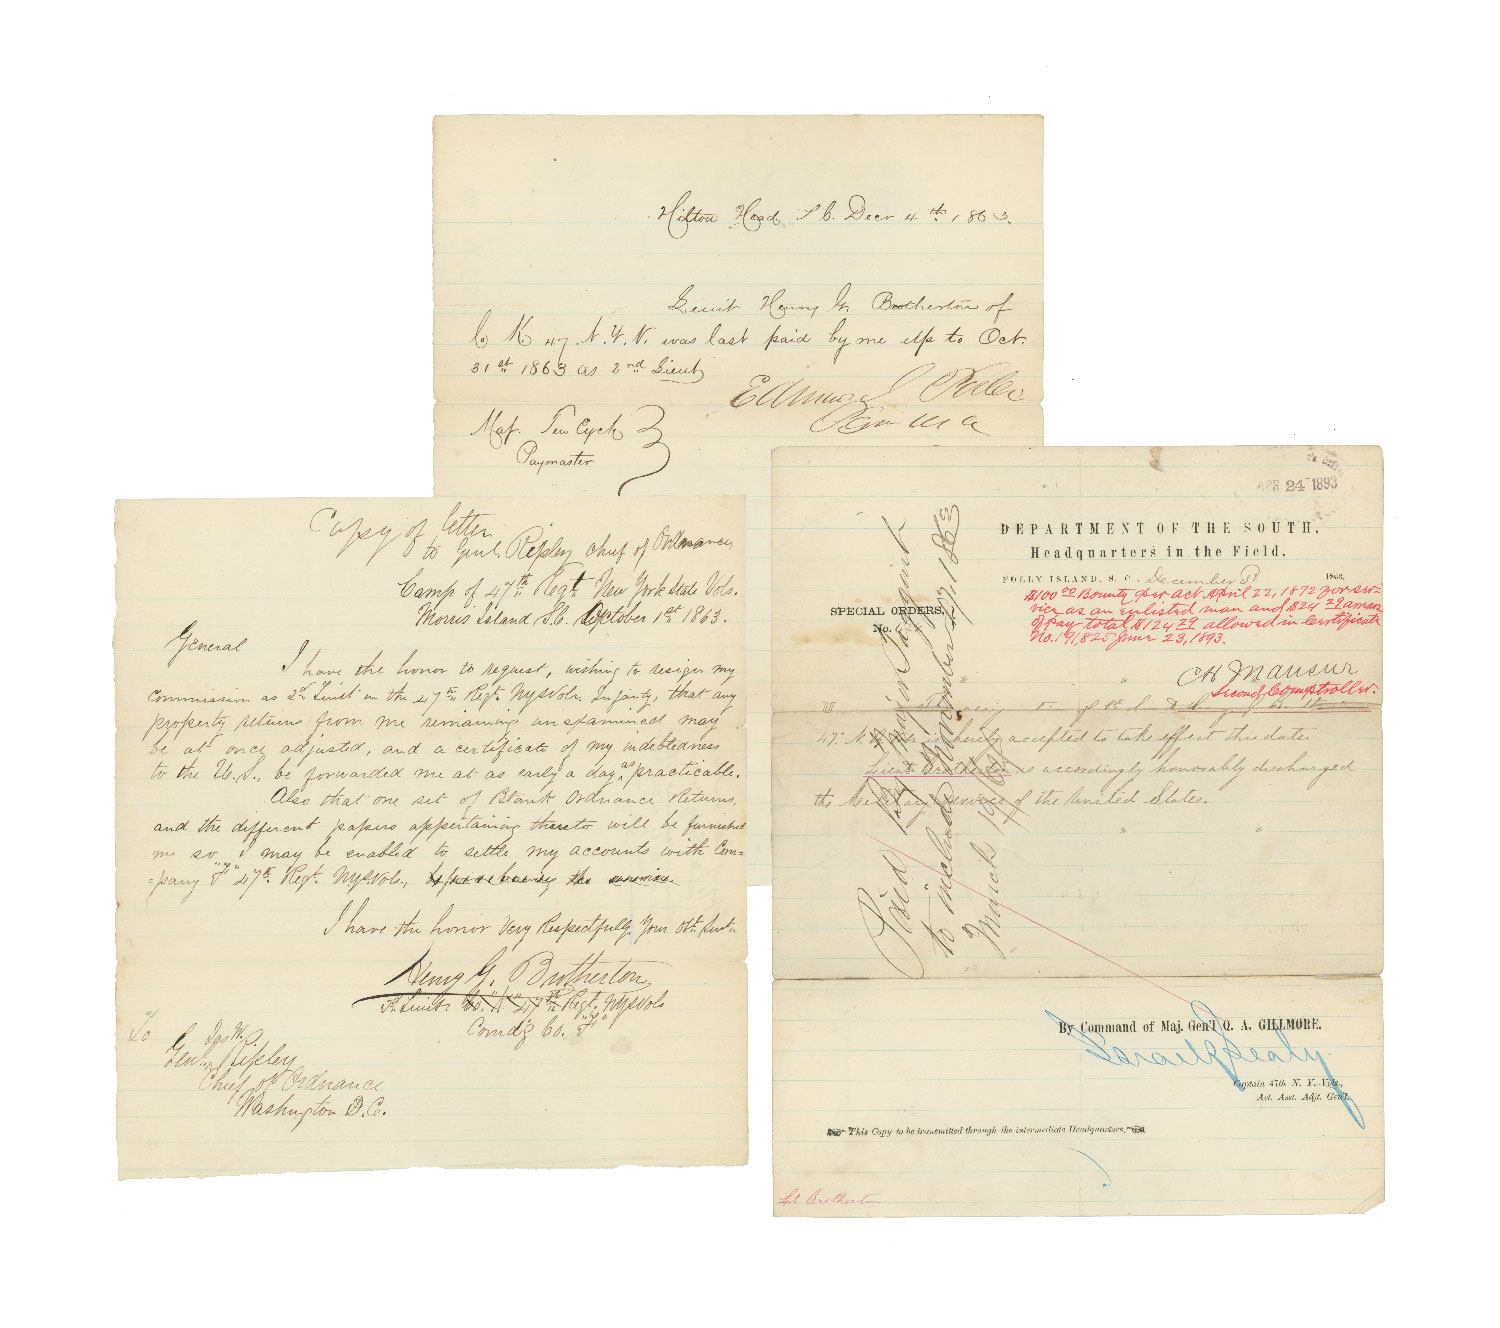 Hilton Head S C. Decr 4th 1863.
Lieut Henry G. Brotherton of
Co K 47 N. Y. V. was last paid by me up to Oct.
31st 1863 as 2nd Lieut
Maj. Ten Eyck
Paymaster
Copy of letter
to Genl. Ripley chief of Ordnance
Camp of 47th Regt New York State Vols.
Morris Island S.C. October 1st 1863.
General
I have the honor to request, wishing to resign my
commission as 2d Lieut in the 47th Regt. NYSVols, Infantry, that any
property returns from me remaining unexamined may
be at once adjusted, and a certificate of my indebtedness
to the U.S., be forwarded me at as early a day as practicable.
Also that one set of Blank Ordnance Returns,
and the different papers appertaining thereto will be furnished
me so I may be enabled to settle my accounts with Com=
=pany "F" 47th Regt. NYSVols.,
I have the honor Very Respectfully Your Obt. Svt.
Henry G. Brotherton
2d. Lieut. Co. "K" 47th Regt. NYSVols
Comd'g Co. "F"
To
Jas W.
Genl. Ripley
Chief of Ordnance
Washington D.C.
APR 24 1893
DEPARTMENT OF THE SOUTH,
Headquarters in the Field.
FOLLY ISLAND, S. C. December 3d 1863.
SPECIAL ORDERS,
No.
$100 00 Bounty per act April 22, 1872 for ser-
vice as an enlisted man and $24 29
of pay total $124 29 allowed in Certificate
No. 191,825 June 23, 1893.
C H Mansur
Second Comptroller.
47th N. is hereby accepted to take effect this date.
Lieut Brotherton is accordingly honorably discharged
the Military Service of the United States.
Paid
to include November 1863
By Command of Maj. Gen'l Q. A. GILLMORE.
Israel R Sealy
Captain 47th N. Y. Vols.,
Act. Asst. Adjt. Gen'l.
This Copy to be transmitted through the intermediate Headquarters.
Lt. Brotherton